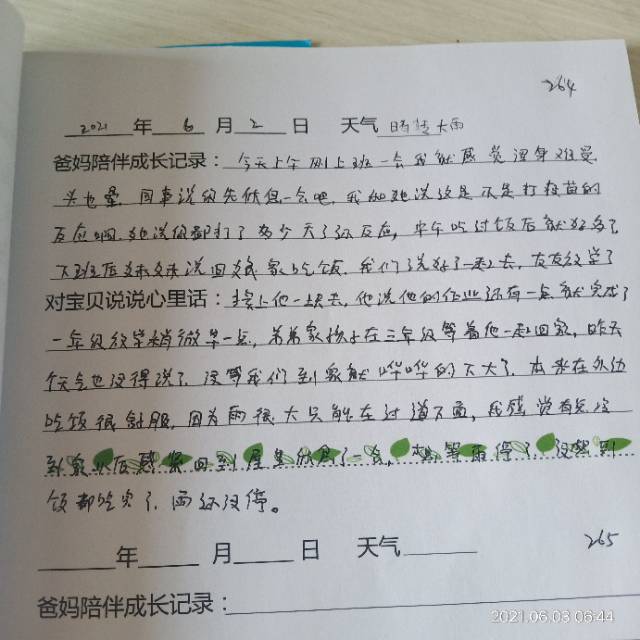 264
2021 年 6 月 2 日 天气 晴转大雨
爸妈陪伴成长记录：今天上午刚上班一会我就感觉浑身难受
头也晕 同事说你先休息一会吧，我和她说这是不是打疫苗的
反应啊，她说你都打了多少天了还反应，中午吃过饭后就好多了
下班后妹妹说回娘家吃饭，我们说好了一起去，友友放学了
对宝贝说说心里话：接上他一块去，他说他的作业还有一点就完成了
一年级放学稍微早一点，弟弟家孩子在三年级等着他一起回家，昨天
天气也没得说了，没等我们到家就哗哗的下大了，本来在外边
吃饭很舒服，因为雨很大只能在过道下面，我感觉有点冷
到家以后赶紧回到屋里休息了一会，想等雨停了，没想到
饭都吃完了，雨还没停。
年 月 日 天气
265
爸妈陪伴成长记录：
2021.06.03 06:44